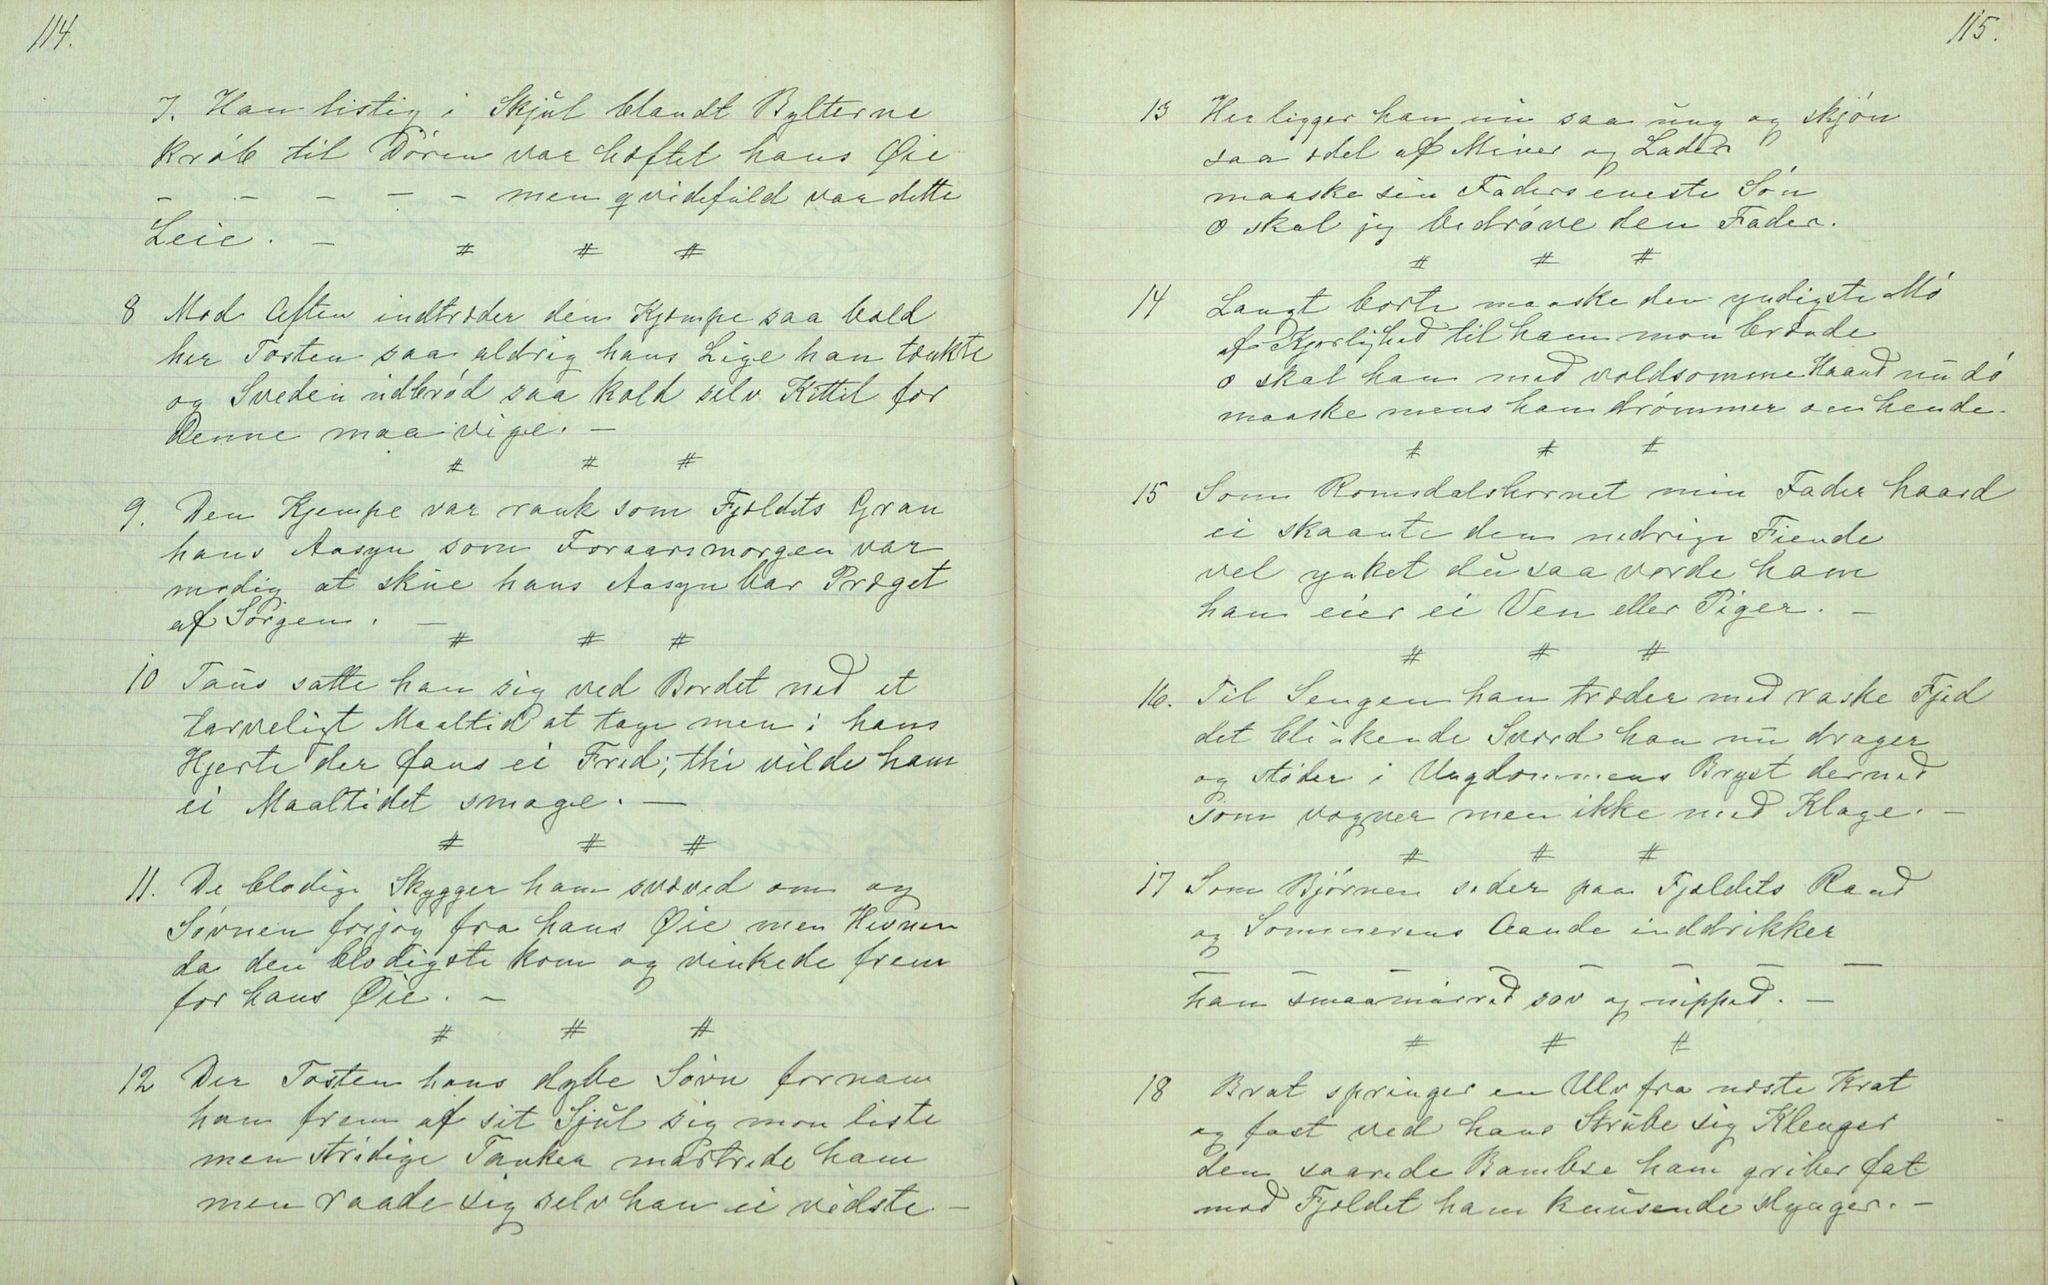 114.
7. Han listig i Skjul blandt Bylterne
krøb til Døren var hæftet hans Øie
– – – – – men qvidefuld var dette
Leie. –
# # #
8 Mod Aften indtræder den Kjæmpe saa bold
her Tosten saa aldrig hans Lige han tænkte
og Sveden udbrød saa kold selv Kittil for
Denne maa vige. –
# # #
9. Den Kjempe var rank som Fjeldets Gran
hans Aasyn som Foraarsmorgen var
modig at skue hans Aasyn bar Præget
af Sorgen. –
# # #
10 Taus satte han sig ved Bordet ned et
tarveligt Maaltid at tage men i hans
Hjerte der fans ei Fred; thi vilde ham
ei Maaltidet smage. –
# # #
11. De blodige Skygger ham svæved om og
Søvnen forjog fra hans Øie men Hevnen
da den blodigste kom og vinkede frem
for hans Øie. –
# # #
12 Der Tosten hans dybe Søvn fornam
han frem af sit Sjul sig mon liste
men stridige Tanker martrede ham
men raade sig selv han ei vidste –
115.
13 Her ligger han nu saa ung og skjøn
saa ædel af Miner og Lader
maaske sin Faders eneste Søn
o skal jeg bedrøve den Fader.
# # #
14 Langt borte maaske den yndigste Mø
af Kjærlighed til ham mon brænde
o skal han med voldsomme Haand nu dø
maaske mens han drømmer om hende.
# # #
15 Som Romsdalshornet min Fader haard
ei skaante den nedrige Fiende
vel ynket du saa vorde ham
han eier ei Ven eller Piger. –
# # #
16. Til Sengen han træder med raske Fjed
det blinkende Sværd han nu drager
og støder i Ungdommens Bryst derned
som vogner men ikke med Klage. –
# # #
17 Som Bjørnen sider paa Fjeldets Rand
og Sommerens Aande inddrikker
– – – – – – – –
han smaamurred sov og nipped. –
# # #
18 Brat springer en Ulv fra næste Krat
og fast ved hans Strube sig Klenger
den saarede Bambse ham griber fat
mod Fjeldet ham knusende slynger. –